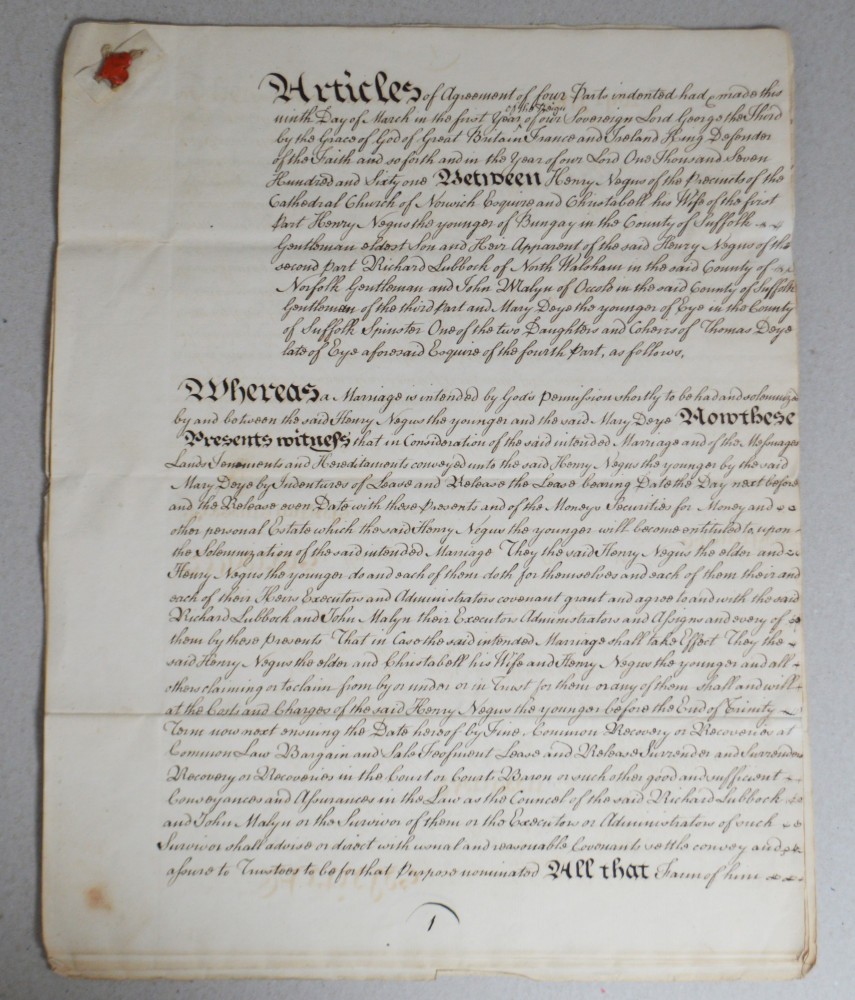 Articles of Agreement of four Parts indented had & made this
ninth Day of March in the first Year of the Reign of our Sovereign Lord George the Third
by the Grace of God of Great Britain France and Ireland King Defender
of the Faith and so forth and in the Year of our Lord One Thousand Seven
Hundred and Sixty one Between Henry Negus of the Precincts of the
Cathedral Church of Norwich Esquire and Christabell his Wife of the first
Part Henry Negus the younger of Bungay in the County of Suffolk
Gentleman eldest Son and Heir Apparent of the said Henry Negus of the
second Part Richard Lubbock of North Walsham in the said County of
Norfolk Gentleman and John Malyn of Occolt in the said County of Suffolk
Gentleman of the third Part and Mary Deye the younger of Eye in the County
of Suffolk Spinster One of the two Daughters and Coheirs of Thomas Deye
late of Eye aforesaid Esquire of the fourth Part, as follows.
Whereas a Marriage is intended by God's Permission shortly to be had and solemnized
by and between the said Henry Negus the younger and the said Mary Deye Now these
Presents witness that in Consideration of the said intended Marriage and of the Messuages
Lands Tenements and Hereditaments conveyed unto the said Henry Negus the younger by the said
Mary Deye by Indentures of Lease and Release the Lease bearing Date the Day next before
and the Release even Date with these Presents and of the Moneys Securities for Money and
other personal Estate which the said Henry Negus the younger will become entituled to upon
the Solemnization of the said intended Marriage They the said Henry Negus the elder and
Henry Negus the younger do and each of them doth for themselves and each of them their and
each of their Heirs Executors and Administrators covenant grant and agree to and with the said
Richard Lubbock and John Malyn their Executors Administrators and Assigns and every of
them by these Presents That in Case the said intended Marriage shall take Effect They the
said Henry Negus the elder and Christabell his Wife and Henry Negus the younger and all
others claiming or to claim from by or under or in Trust for them or any of them shall and will
at the Costs and Charges of the said Henry Negus the younger before the End of Trinity
Term now next ensuing the Date hereof by Fine Common Recovery or Recoveries at
Common Law Bargain and Sale Feofment Lease and Release Surrender and Surrenders
Recovery or Recoveries in the Court or Courts Baron or such other good and sufficient
Conveyances and Assurances in the Law as the Councel of the said Richard Lubbock
and John Malyn or the Survivor of them or the Executors or Administrators of such
Survivor shall advise or direct with usual and reasonable Covenants settle convey and
assure to Trustees to be for that Purpose nominated All that Farm of him
1